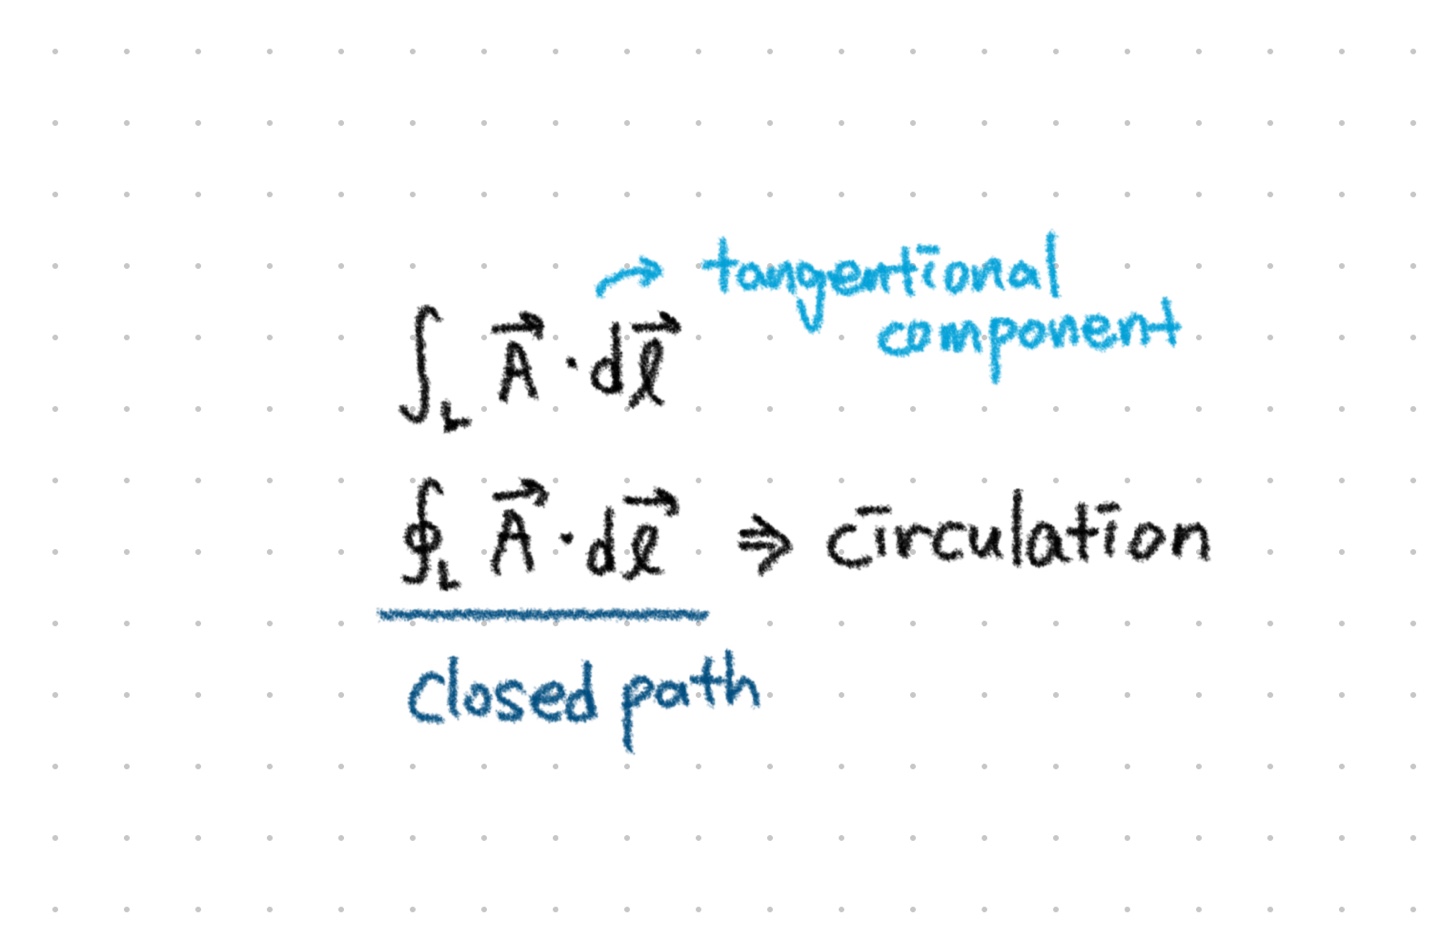 → tangentional
component
∫_L A⃗ · dl⃗
∮_L A⃗ · dl⃗ ⇒ circulation
closed path